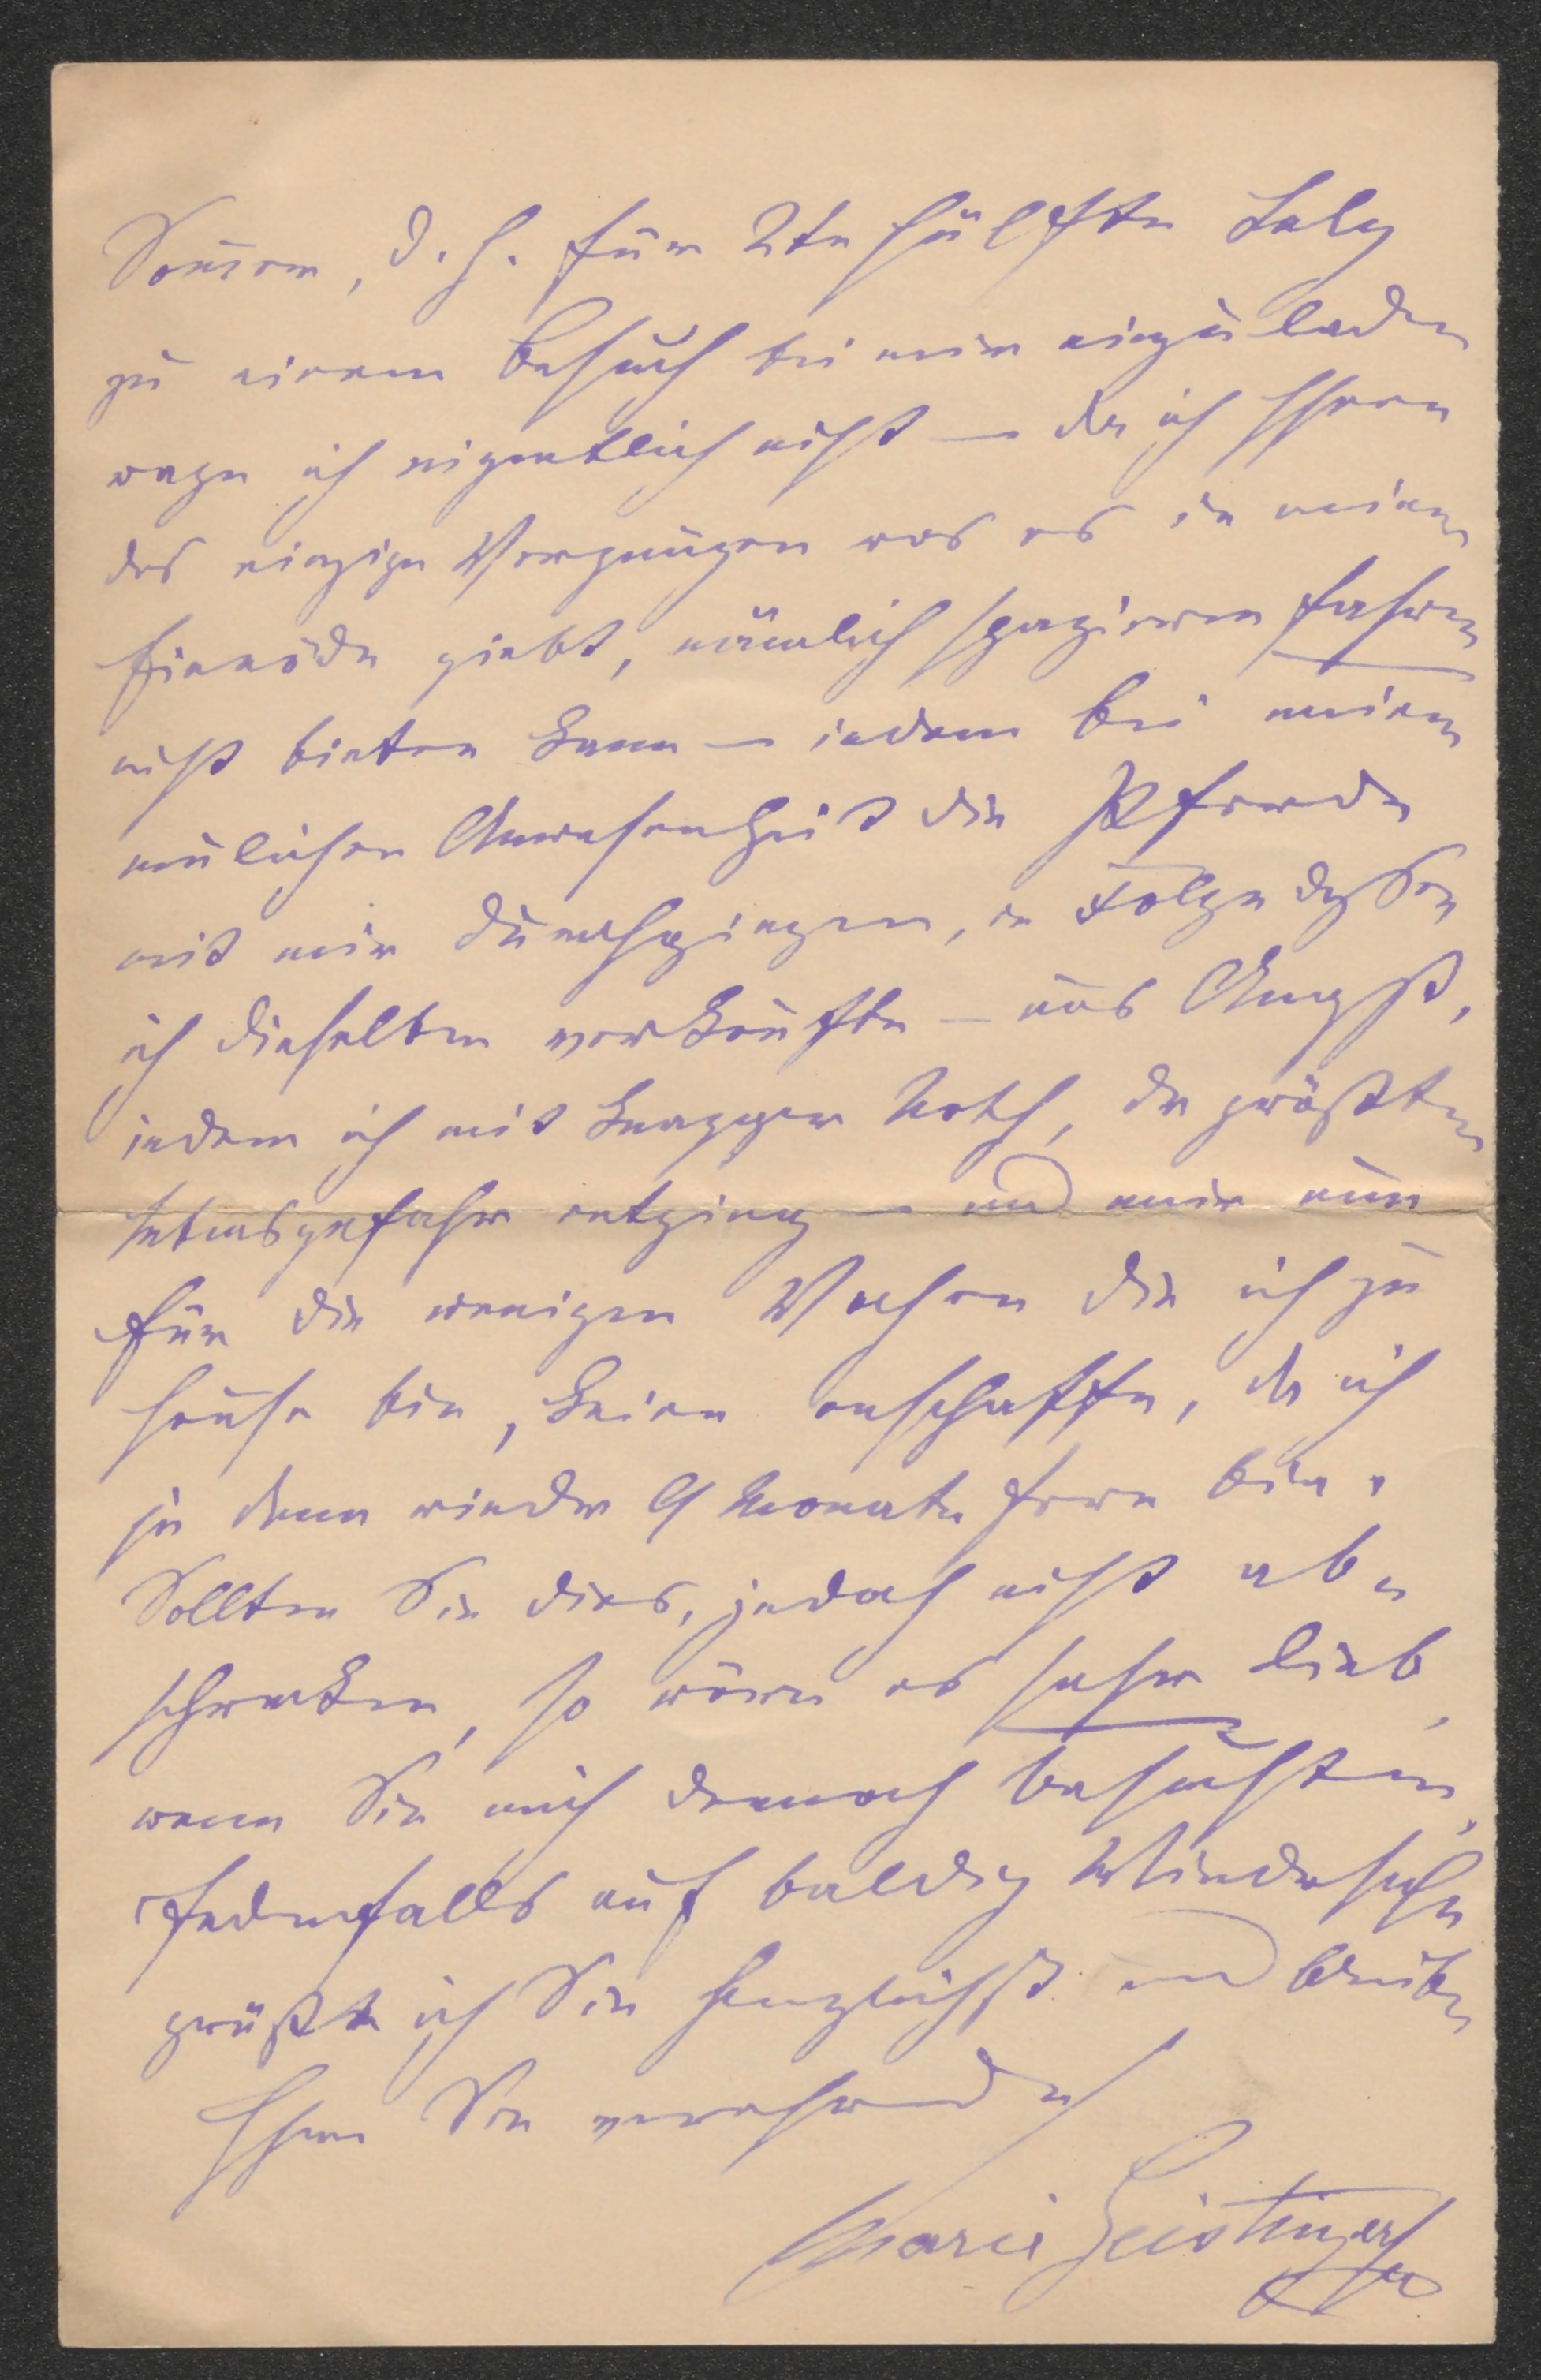 Som̄er, d. h. für 2te Hälfte July
zu einem Besuch bei mir einzuladen
wage ich eigentlich nicht — da ich Ihnen
das einzige Vergnügen was es in meiner
Einöde giebt, nämlich spazieren fahren
nicht bieten kann — indem bei meiner
neulichen Anwesenheit die Pferde
mit mir durchgingen, in Folge dessen
ich dieselben verkaufte — aus Angst,
indem ich mit knapper Noth, der größten
Lebensgefahr entging — und mir nun
für die wenigen Wochen die ich zu
Hause bin, keine anschaffte, da ich
ja dann wieder 9 Monate fern bin.
Sollten Sie dies, jedoch nicht ab-
schrecken, so wäre es sehr lieb,
wenn Sie mich dennoch besuchten,
Jedenfalls auf baldig Wiedersehn
grüßt ich Sie herzlichst und bleibe
Ihre Sie verehrende
Marie Geistinger